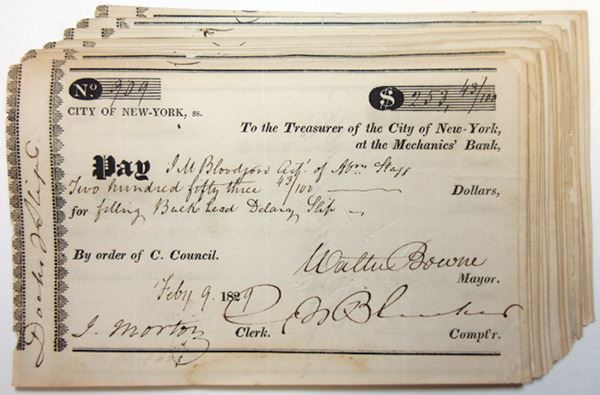 No. 909
$ 253, 43/100
CITY OF NEW-YORK, ss.
To the Treasurer of the City of New-York,
at the Mechanics' Bank,
Pay J M Bloodgood of Abm Stagg
Two hundred fifty three 43/100 Dollars,
for filling Bulk head Delancy Slip
By order of C. Council.
Walter Bowne
Mayor.
Feby 9. 1829
J. Morton Clerk.
Compt'r.
Docks & Slips